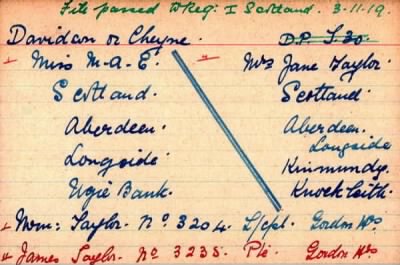 File passed W Reg: I Scotland. 3-11-19.
Davidson or Cheyne. D.P. S.30
Miss M-A-E. " Mrs Jane Taylor.
Scotland. Scotland.
Aberdeen. Aberdeen.
Longside
Longside Kinmundy.
Ugie Bank. Knockleith.
Wm: Taylor. No 3204. L/cpl. Gordon Hrs
James Taylor. No 3235. Pte. Gordon Hrs.